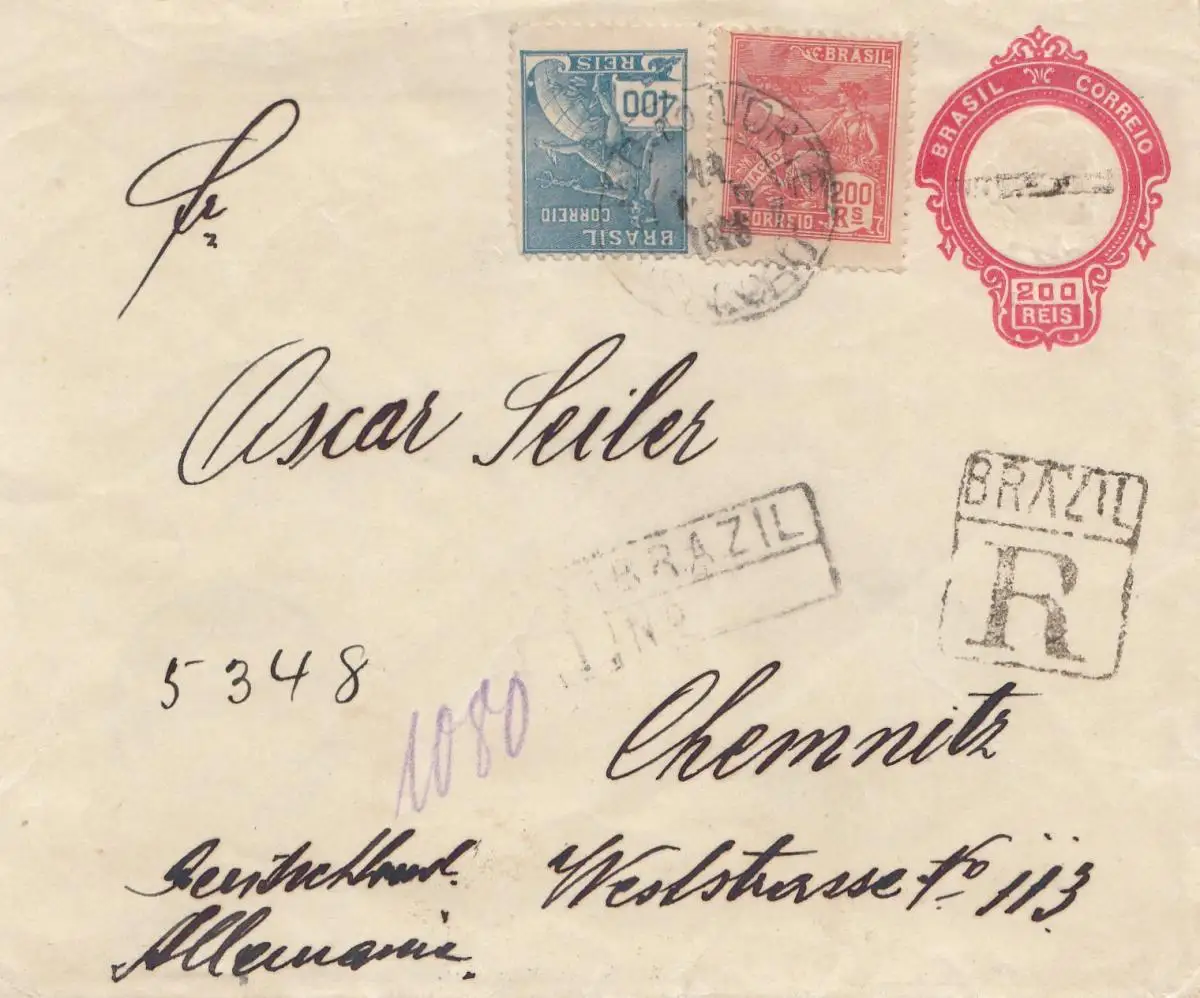 BRASIL CORREIO
200
REIS
BRASIL
VIAÇÃO
200
Rs
CORREIO
400
REIS
BRASIL
CORREIO
Sr
Oscar Seiler
BRAZIL
R
BRAZIL
Nº
5348
1080
Chemnitz
Deutschland. Weststrasse Nº 113
Allemanie.